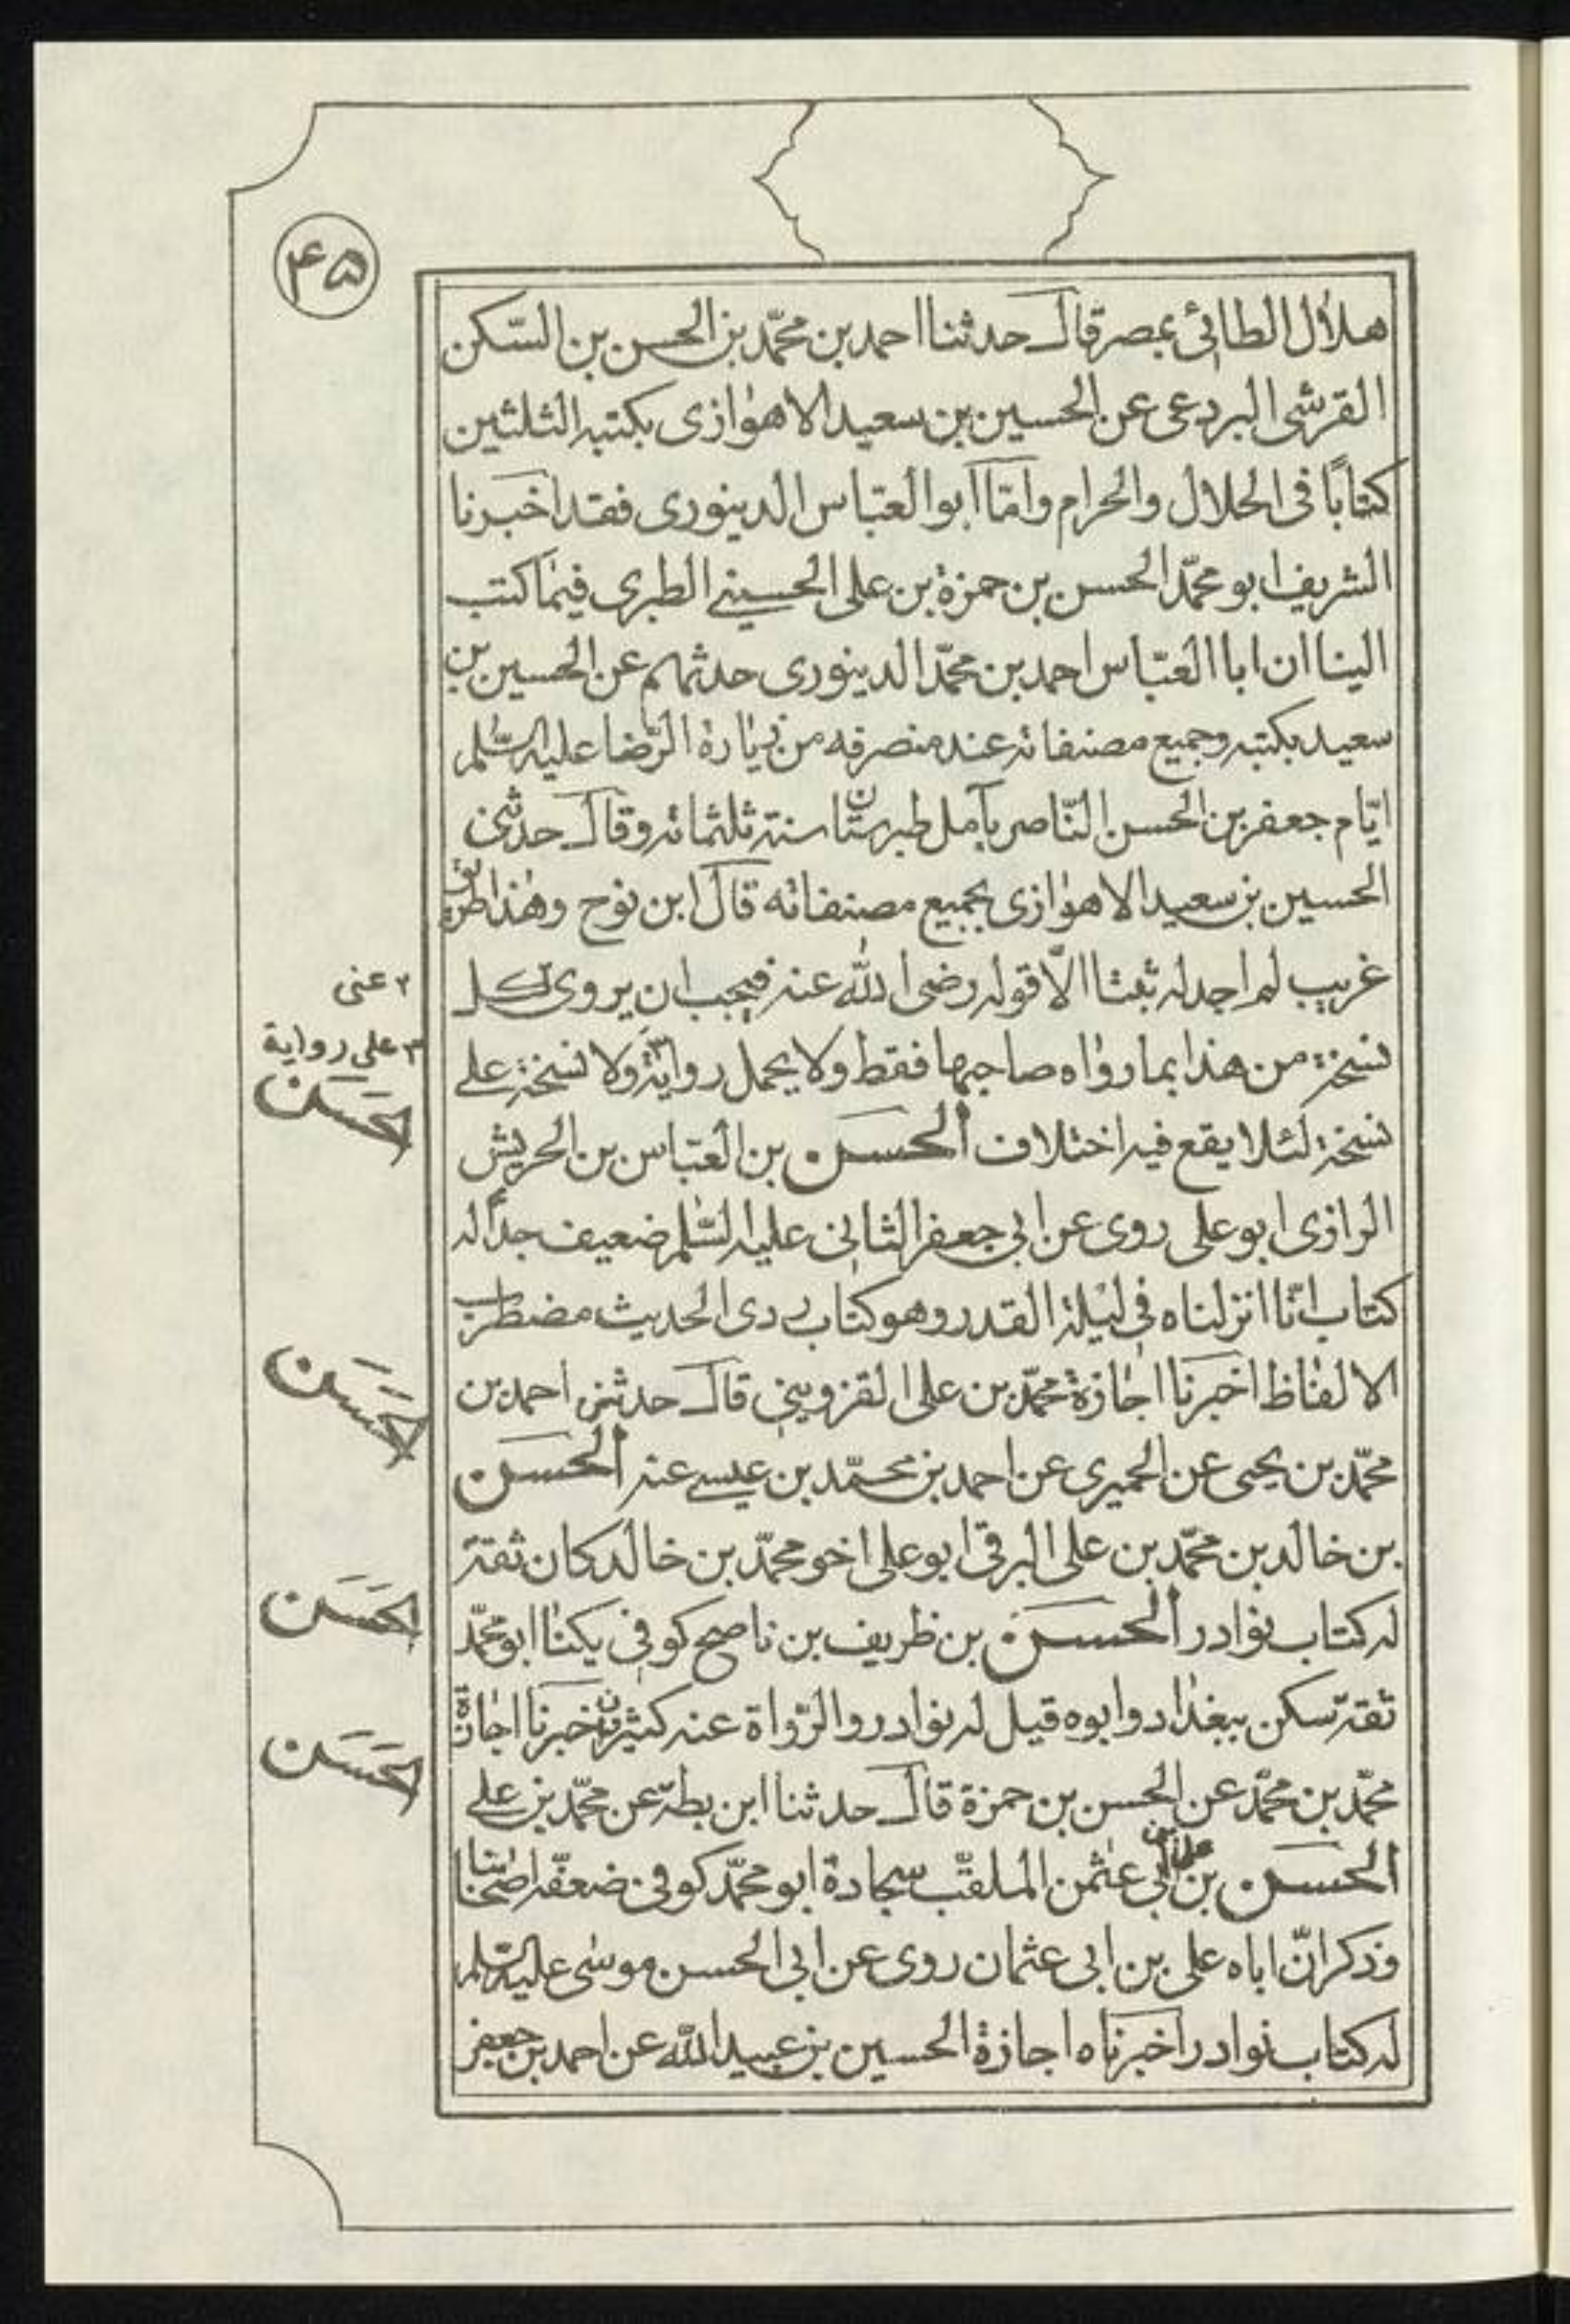 ۴۵
هلال الطائی بمصر قال حدثنا احمد بن محمّد بن الحسن بن السّکن
القرشی البردعی عن الحسین بن سعید الاهوازی بکتبه الثلثین
کتابًا فی الحلال والحرام وامّا ابوالعبّاس الدینوری فقد اخبرنا
الشریف ابو محمّد الحسن بن حمزة بن علی الحسینی الطبری فیما کتب
الینا ان ابا العبّاس احمد بن محمّد الدینوری حدثهم عن الحسین بن
سعید بکتبه وجمیع مصنفاته عند منصرفه من زیارة الرّضا علیه السّلم
ایّام جعفر بن الحسن النّاصر بآمل طبرستان سنة ثلثمائه وقال حدثنی
الحسین بن سعید الاهوازی بجمیع مصنفاته قال ابن نوح وهذا طریق
غریب لم اجد له ثبتا الّا قوله رضی الله عنه فیجب ان یروی لکل
۲ عنی
نسخة من هذا بما رواه صاحبها فقط ولا یحمل روایة ولا نسخة علی
۳ علی روایة
نسخة لئلا یقع فیه اختلاف الحسن بن العبّاس بن الحریش
الحسن
الرازی ابو علی روی عن ابی جعفر الثانی علیه السّلم ضعیف جدًا له
کتاب انّا انزلناه فی لیلة القدر وهو کتاب ردی الحدیث مضطرب
الالفاظ اخبرنا اجازة محمّد بن علی القزوینی قال حدثنی احمد بن
الحسن
محمّد بن یحیی عن الحمیری عن احمد بن محمّد بن عیسی عنه الحسن
بن خالد بن محمّد بن علی البرقی ابو علی اخو محمّد بن خالد کان ثقة
له کتاب نوادر الحسن بن ظریف بن ناصح کوفی یکنا ابو محمّد
الحسن
ثقة سکن ببغداد وابوه قیل له نوادر والرّواة عنه کثیرون اخبرنا اجازة
محمّد بن محمّد عن الحسن بن حمزة قال حدثنا ابن بطة عن محمّد بن علی
الحسن
الحسن بن علی بن ابی عثمن الملقّب سجادة ابو محمّد کوفی ضعفّه اصحابنا
وذکر انّ اباه علی بن ابی عثمان روی عن ابی الحسن موسی علیه السّلم
له کتاب نوادر اخبرناه اجازة الحسین بن عبید الله عن احمد بن جعفر